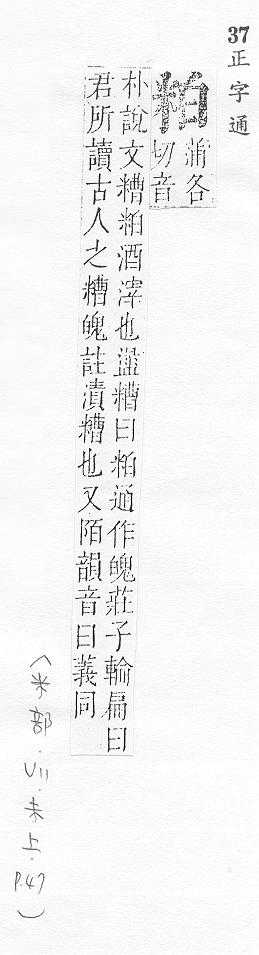 37 正字通
粕
蒲各
切音
朴說文糟粕酒滓也盝糟曰粕通作魄莊子輪扁曰
君所讀古人之糟魄註漬糟也又陌韻音曰義同
(米部．VII．未上．P.47)